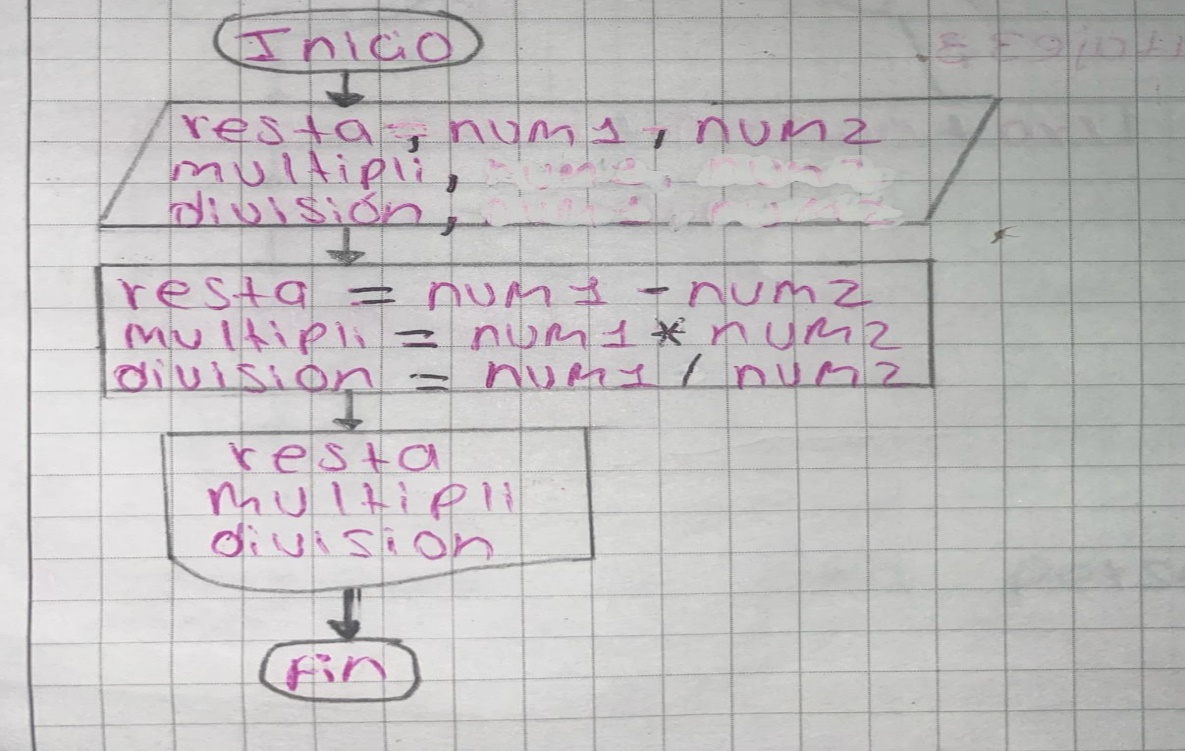 Inicio
resta, num1, num2
multipli,
división,
resta = num1 - num2
multipli = num1 * num2
division = num1 / num2
resta
multipli
division
Fin